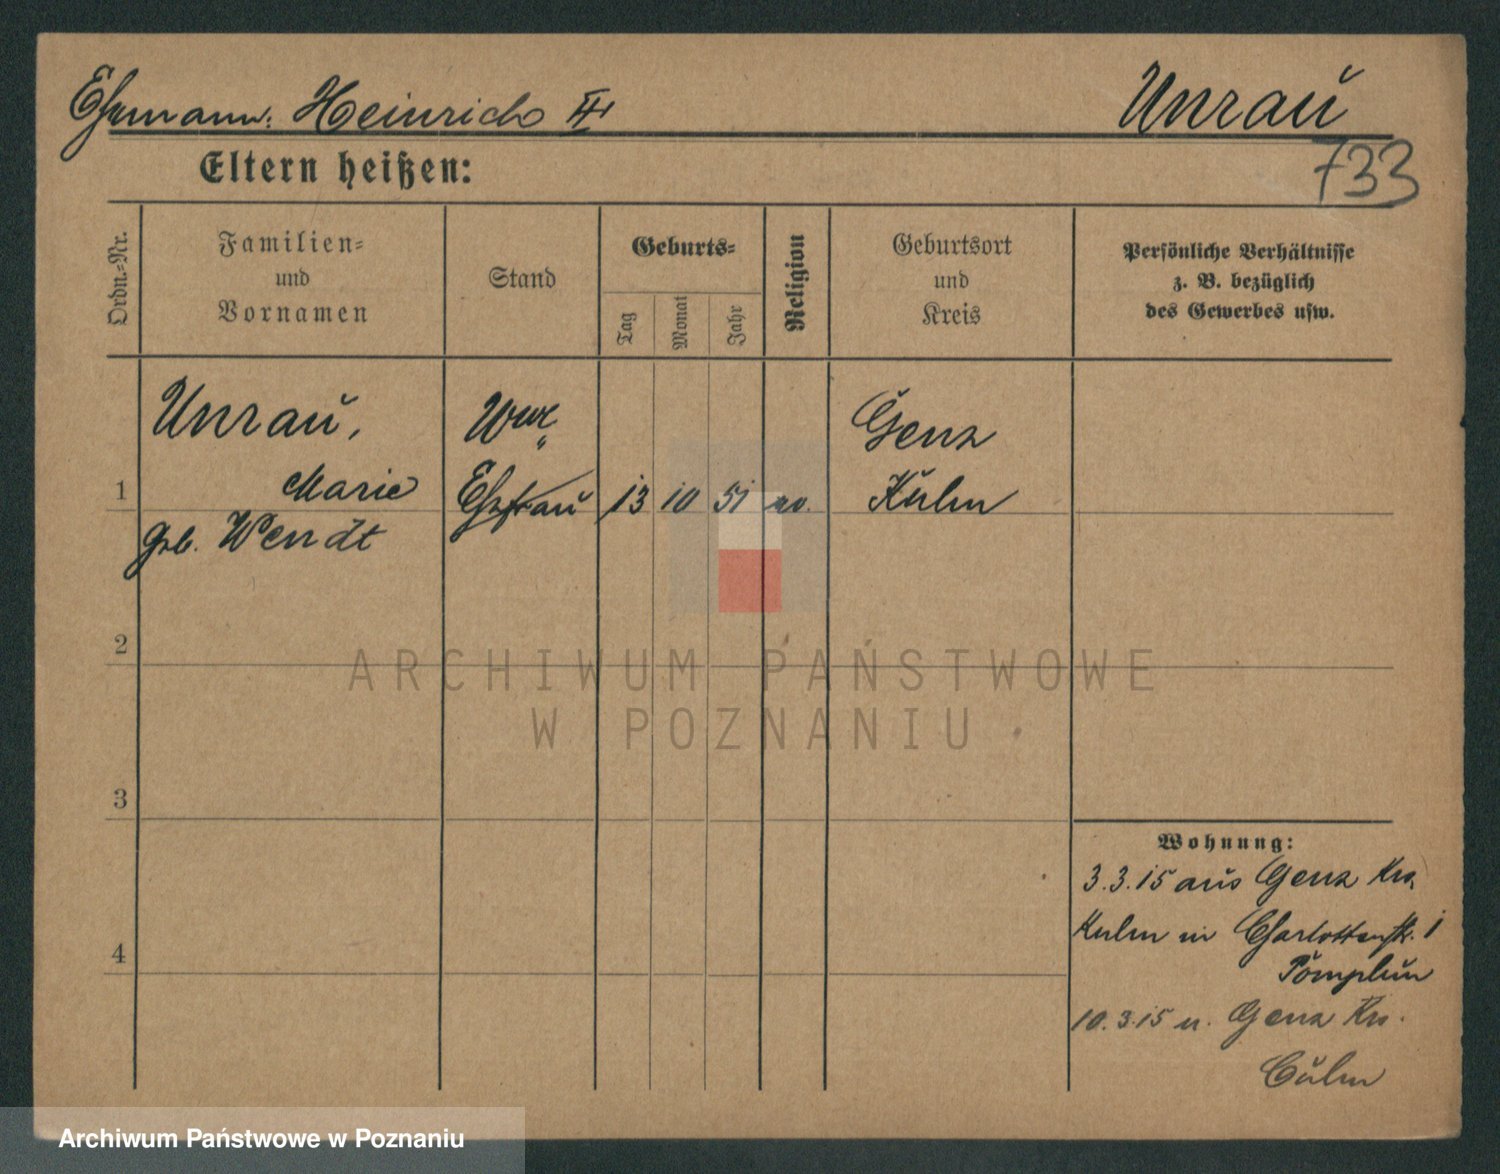 Ehemann: Heinrich II
Unrau
733
Eltern heißen:
Ordn.=Nr.
Familien=
und
Vornamen
Stand
Geburts=
Tag
Monat
Jahr
Religion
Geburtsort
und
Kreis
Persönliche Verhältnisse
z. B. bezüglich
des Gewerbes usw.
Unrau,
Genz
1
Marie
Ehefrau
13
10
51
ev.
Kulm
geb. Wendt
2
3
4
Wohnung:
3.3.15 aus Genz Krs.
Kulm in Charlottenstr. 1
Pomplun
10.3.15 n. Genz Krs.
Culm
ARCHIWUM PAŃSTWOWE
W POZNANIU
Archiwum Państwowe w Poznaniu